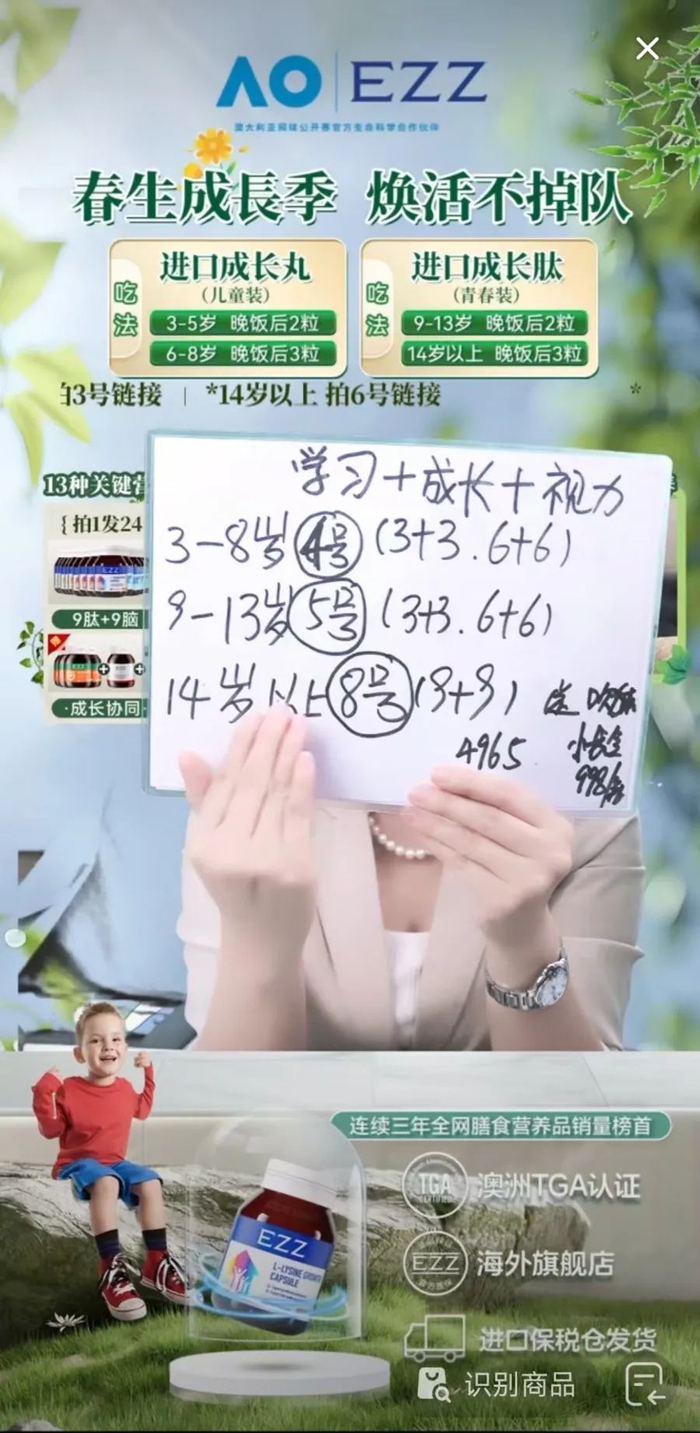 AO | EZZ
澳大利亚网球公开赛官方生命科学合作伙伴
春生成長季 焕活不掉队
吃法
进口成长丸
(儿童装)
3-5岁 晚饭后2粒
6-8岁 晚饭后3粒
吃法
进口成长肽
(青春装)
9-13岁 晚饭后2粒
14岁以上 晚饭后3粒
拍3号链接 | *14岁以上 拍6号链接 *
13种关键营
{ 拍1发24
EZZ
9肽+9脑
·成长协同·
学习+成长+视力
3-8岁 4号 (3+3.6+6)
9-13岁 5号 (3+3.6+6)
14岁以上 8号 (9+9)
4965
连续三年全网膳食营养品销量榜首
TGA
CERTIFIED
澳洲TGA认证
EZZ
海外旗舰店
进口保税仓发货
EZZ
L-LYSINE GROWTH
CAPSULE
识别商品